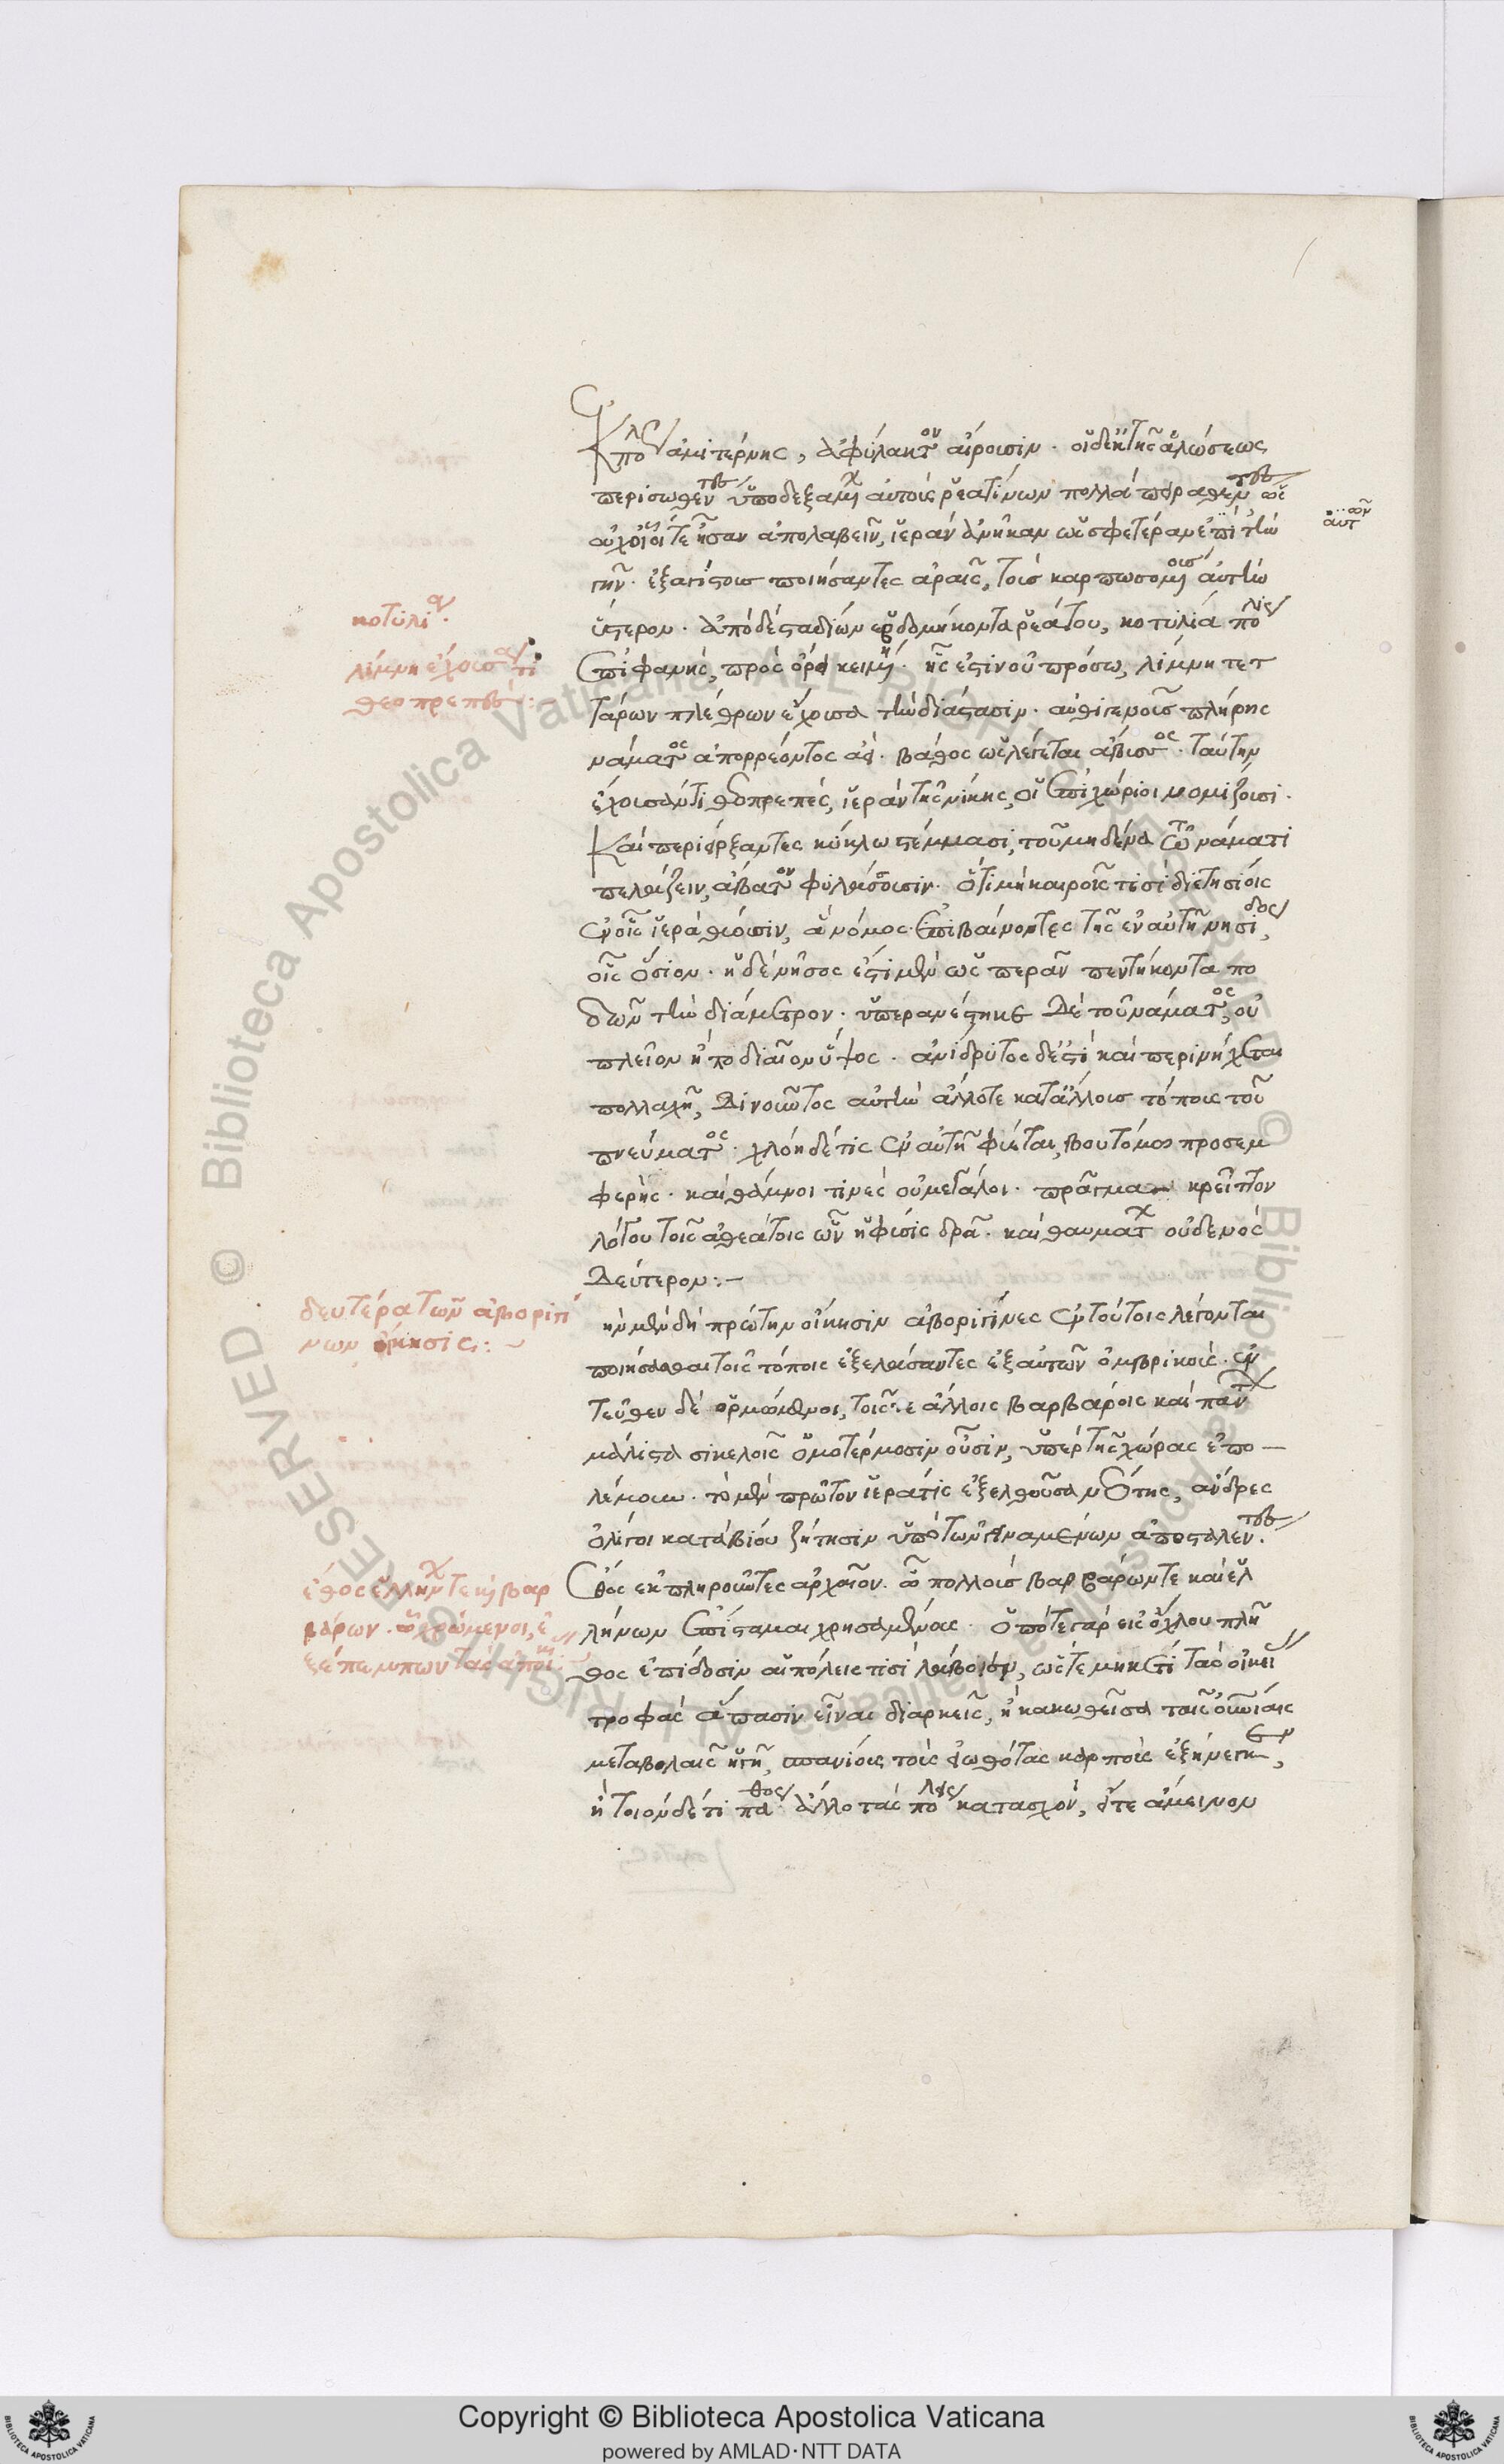 ἐκ πόλεως ἀμιτέρνης, ἀφύλακτον αἱροῦσιν. οἱ δ' ἐκ τῆς ἁλώσεως
περισωθέντες ὑποδεξαμένων αὐτοὺς ῥεατίνων πολλὰ πειραθέντες ὡς
οὐχ οἷοί τε ἦσαν ἀπολαβεῖν, ἱερὰν ἀνῆκαν ὡς σφετέραν ἔτι τὴν
αὐτῶν
γῆν. ἐξαγίστους ποιήσαντες ἀραῖς, τοὺς καρπωσομένους αὐτὴν
ὕστερον. ἀπὸ δὲ σταδίων ἑβδομήκοντα ῥεάτου, κοτυλία πόλις
ἐπιφανής, πρὸς ὄρει κειμένη. ἧς ἐστιν οὐ πρόσω, λίμνη τετ
τάρων πλέθρων ἔχουσα τὴν διάστασιν. αὐθιγενοῦς πλήρης
νάματος ἀπορρέοντος ἀεί. βάθος ὡς λέγεται ἄβυσσος. ταύτην
ἔχουσάν τι θεοπρεπές, ἱερὰν τῆς νίκης οἱ ἐπιχώριοι νομίζουσι.
καὶ περιείρξαντες κύκλω στέμμασι, τοῦ μηδένα τῶ νάματι
πελάζειν, ἄβατον φυλάσσουσιν. ὅτι μὴ καιροῖς τισὶ διετησίοις
ἐν οἷς ἱερὰ θύουσιν, ἃ νόμος. ἐπιβαίνοντες τῆς ἐν αὐτῆ νησίδος,
οἷς ὅσιον. ἡ δὲ νῆσος ἔστι μὲν ὡς περ ἂν πεντήκοντα πο
δῶν τὴν διάμετρον. ὑπερανέστηκε δὲ τοῦ νάματος, οὐ
πλεῖον ἢ ποδιαῖον ὕψος. ἀνίδρυτος δ' ἐστὶ καὶ περινήχεται
πολλαχῆ, δινοῦντος αὐτὴν ἄλλοτε κατ' ἄλλους τόπους τοῦ
πνεύματος. χλόη δέ τις ἐν αὐτῆ φύεται, βουτόμω προσεμ
φερής. καὶ θάμνοι τινὲς οὐ μεγάλοι. πρᾶγμα κρεῖττον
λόγου τοῖς ἀθεάτοις ὧν ἡ φύσις δρᾶ. καὶ θαυμάτων οὐδενὸς
δεύτερον:—
κοτύλια.
λίμνη ἔχουσά τι
θεοπρεπές:
τὴν μὲν δὴ πρώτην οἴκησιν ἀβοριγῖνες ἐν τούτοις λέγονται
ποιήσασθαι τοῖς τόποις ἐξελάσαντες ἐξ αὐτῶν ὀμβρικούς. ἐν
τεῦθεν δὲ ὁρμώμενοι, τοῖς τε ἄλλοις βαρβάροις καὶ πάντων
μάλιστα σικελοῖς ὁμοτέρμοσιν οὖσιν, ὑπὲρ τῆς χώρας ἐπο
λέμουν. τὸ μὲν πρῶτον ἱερά τις ἐξελθοῦσα νεότης, ἄνδρες
ὀλίγοι κατὰ βίου ζήτησιν ὑπὸ τῶν γειναμένων ἀποσταλέντες.
ἔθος ἐκπληροῦντες ἀρχαῖον. ὧ πολλοὺς βαρβάρων τε καὶ ἑλ
λήνων ἐπίσταμαι χρησαμένους. ὁπότε γὰρ εἰς ὄχλου πλῆ
θος ἐπίδοσιν αἱ πόλεις τισὶ λάβοιεν, ὥστε μηκέτι τὰς οἰκείας
τροφὰς ἅπασιν εἶναι διαρκεῖς, ἢ κακωθεῖσα ταῖς οὐρανίοις
μεταβολαῖς ἡ γῆ, σπανίους τοὺς εἰωθότας καρποὺς ἐξήνεγκεν,
ἢ τοιόνδέ τι πάθος ἄλλο τὰς πόλεις κατασχὸν, εἴτε ἄμεινον
δευτέρα τῶν ἀβοριγί
νων οἴκησις:
ἔθος ἑλλήνων τε καὶ βαρ
βάρων. ὧ χρώμενοι, ἐ
ξέπεμπον τὰς ἀποικίας: